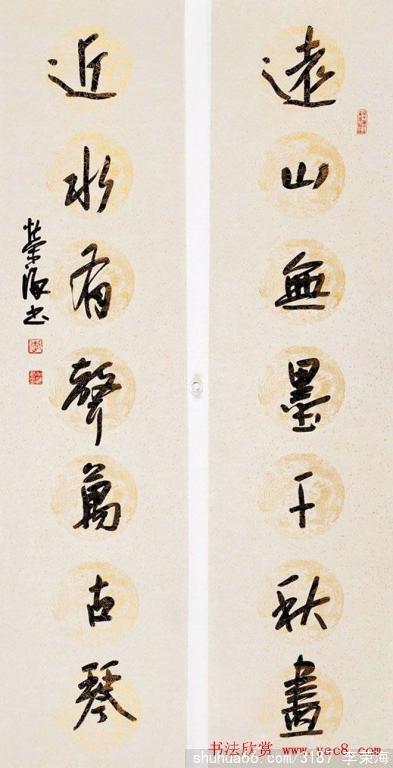 遠山無墨千秋畫
近水有聲萬古琴
荣海书
书法欣赏 www.yac8.com
shuhua66.com/3187 李荣海